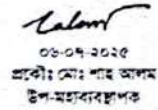 ০৬-০৭-২০২৫
প্রকৌঃ মোঃ শাহ আলম
উপ-মহাব্যবস্থাপক